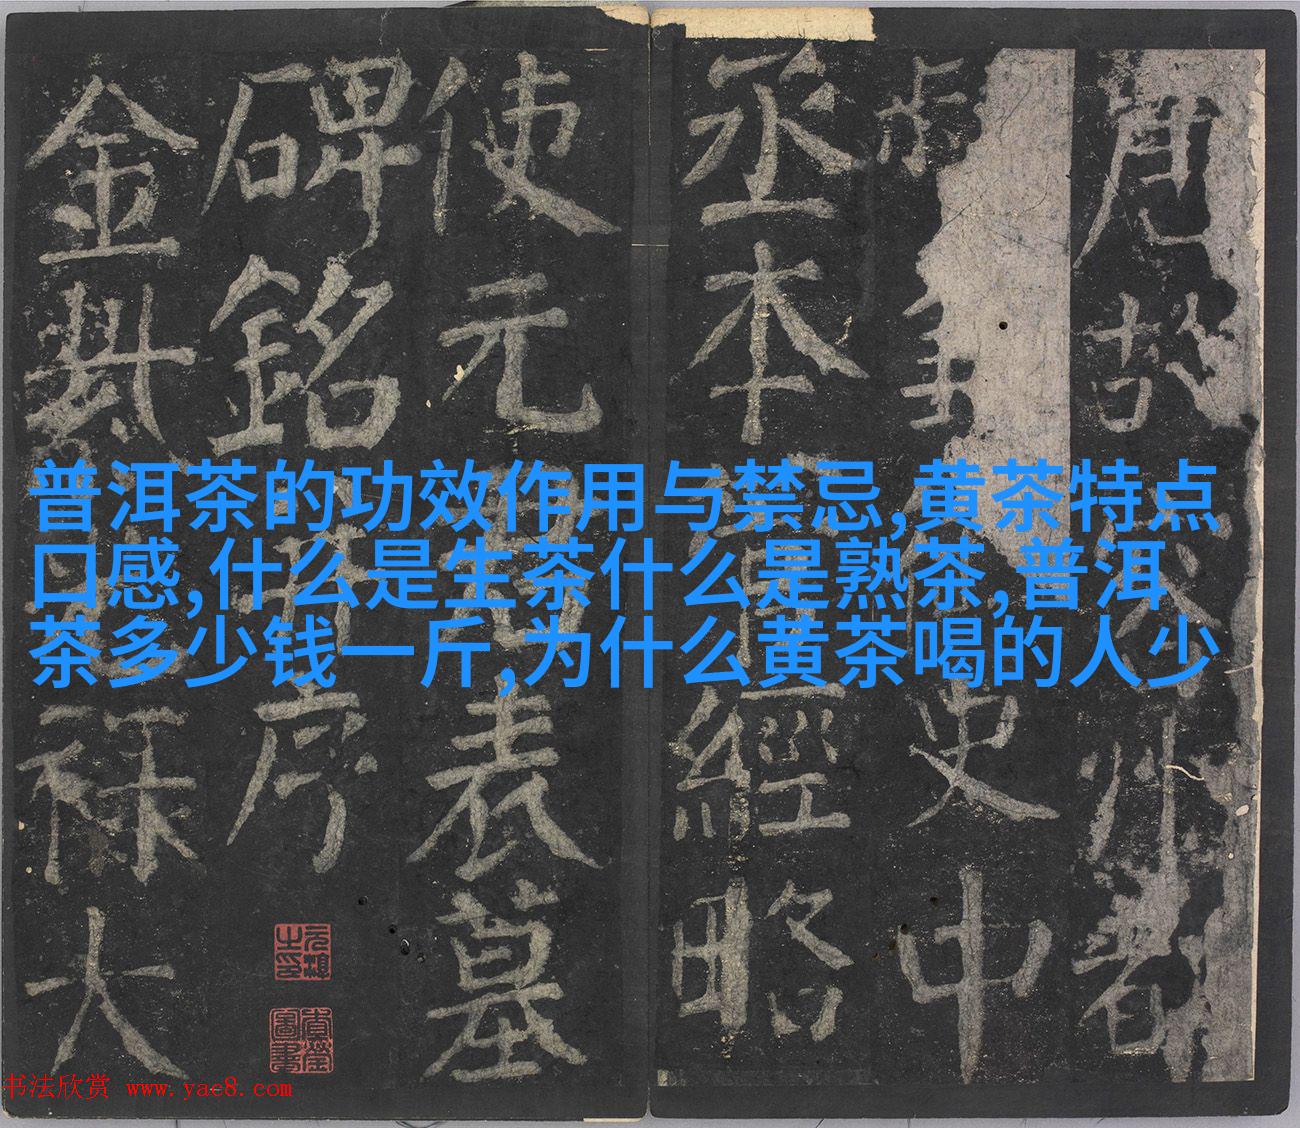 普洱茶的功效作用与禁忌,黄茶特点
口感,什么是生茶什么是熟茶,普洱
茶多少钱一斤,为什么黄茶喝的人少
唐故州都
史中
丞本經略
使元表墓
碑銘序
金禄大
书法欣赏 www.yac8.com